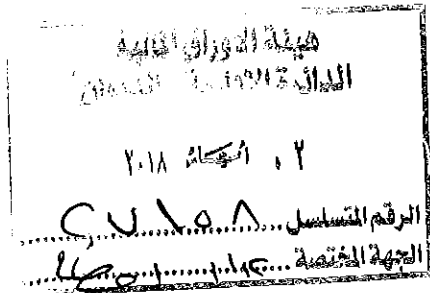 هيئة الاوراق المالية
الدائرة الادارية الديوان
٠٢ ٢٠١٨
الرقم المتسلسل ٢٧١٥٨
الجهة المختصة